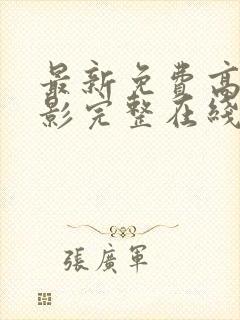 最新免费高
影完整在綫
張廣軍